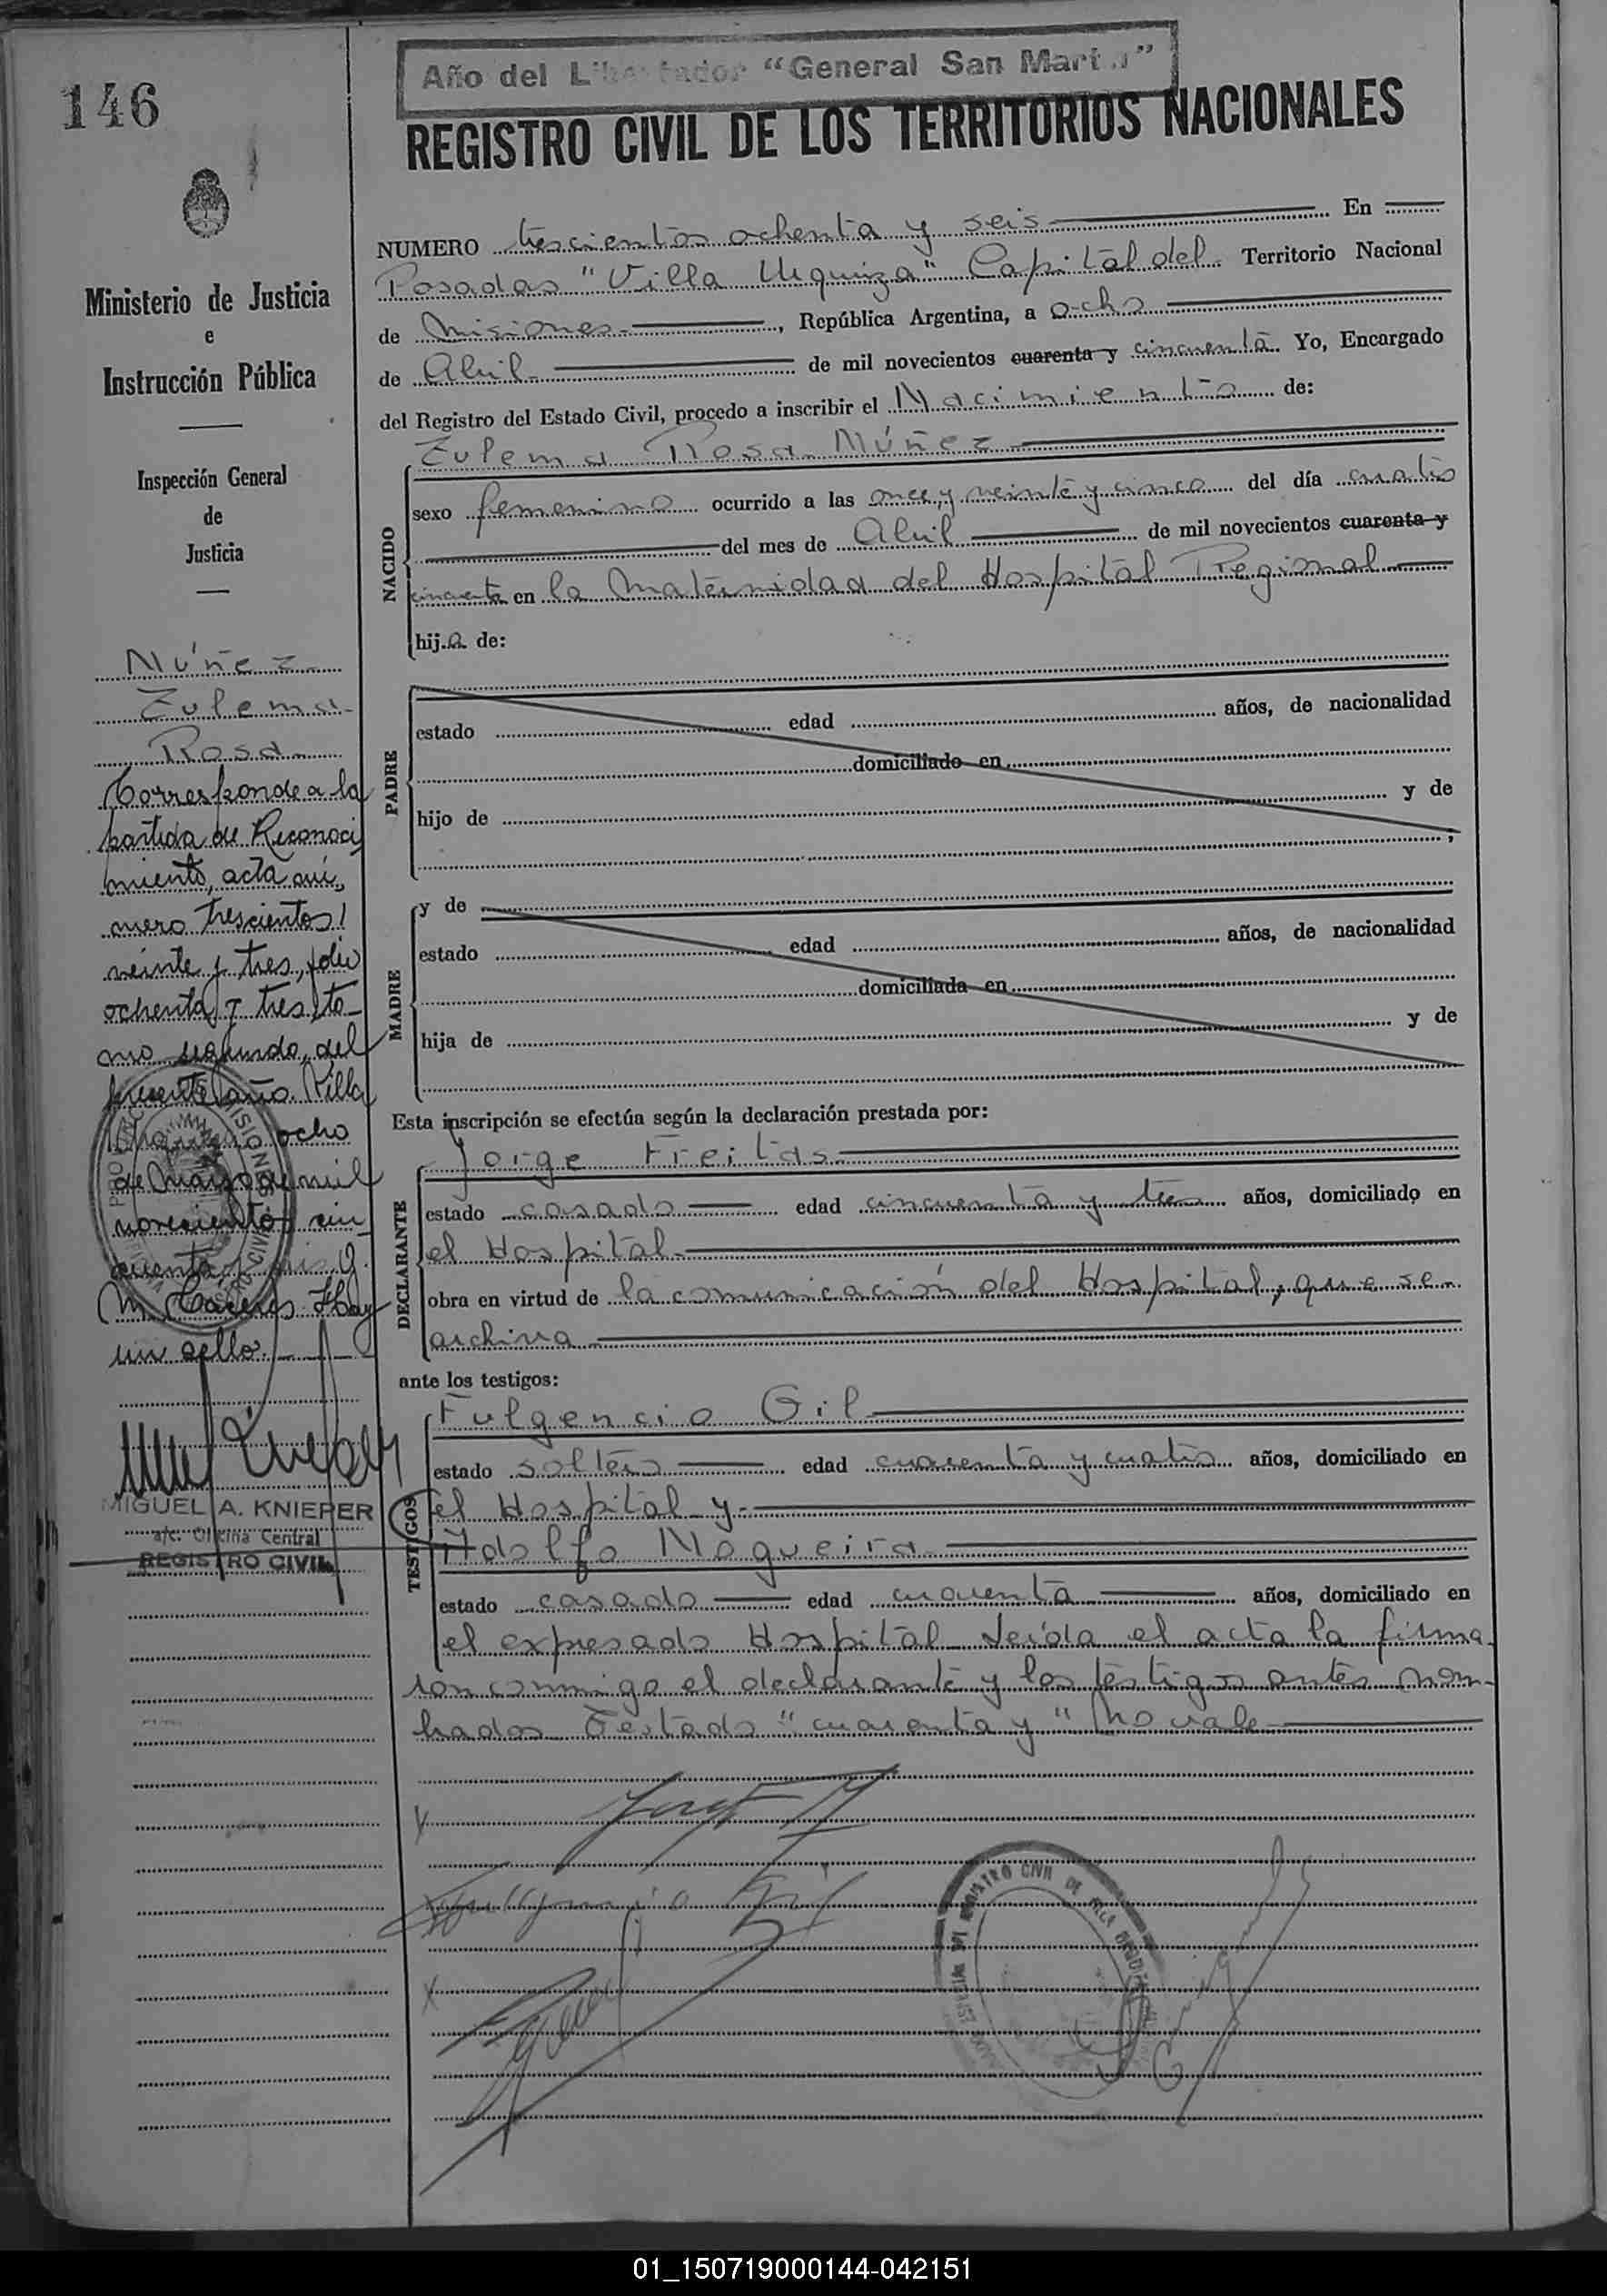 146
Año del Libertador "General San Martín"
REGISTRO CIVIL DE LOS TERRITORIOS NACIONALES
Ministerio de Justicia
e
Instrucción Pública
Inspección General
de
Justicia
NUMERO trescientos ochenta y seis En
Posadas "Villa Urquiza" Capital del Territorio Nacional
de Misiones, República Argentina, a ocho
de Abril de mil novecientos cuarenta y cincuenta. Yo, Encargado
del Registro del Estado Civil, procedo a inscribir el Nacimiento de:
Zulema Rosa Múñez
NACIDO
sexo femenino ocurrido a las once y veinte y cinco del día cuatro
del mes de Abril de mil novecientos cuarenta y
cincuenta en la Maternidad del Hospital Regional
hija de:
PADRE
estado edad años, de nacionalidad
domiciliado en
hijo de y de
MADRE
y de
estado edad años, de nacionalidad
domiciliada en
hija de y de
Esta inscripción se efectúa según la declaración prestada por:
DECLARANTE
Jorge Freitas
estado casado edad cincuenta y tres años, domiciliado en
el Hospital
obra en virtud de la comunicación del Hospital, que se
archiva
ante los testigos:
TESTIGOS
Fulgencio Gil
estado soltero edad cuarenta y cuatro años, domiciliado en
el Hospital y
Adolfo Nogueira
estado casado edad cuarenta años, domiciliado en
el expresado Hospital Leída el acta la firma
ron conmigo el declarante y los testigos antes nom-
brados Testado "cuarenta y" No vale
Múñez
Zulema
Rosa
Corresponde a la
partida de Reconoci
miento, acta nú
mero trescientos
veinte y tres, folio
ochenta y tres, to-
mo segundo, del
presente año. Villa
ocho
de Mayo de mil
novecientos cin
cuenta
M. Cáceres Hay
un sello.
MIGUEL A. KNIEPER
a/c. Oficina Central
REGISTRO CIVIL
Fulgencio Gil
REGISTRO CIVIL DE VILLA URQUIZA
01_150719000144-042151